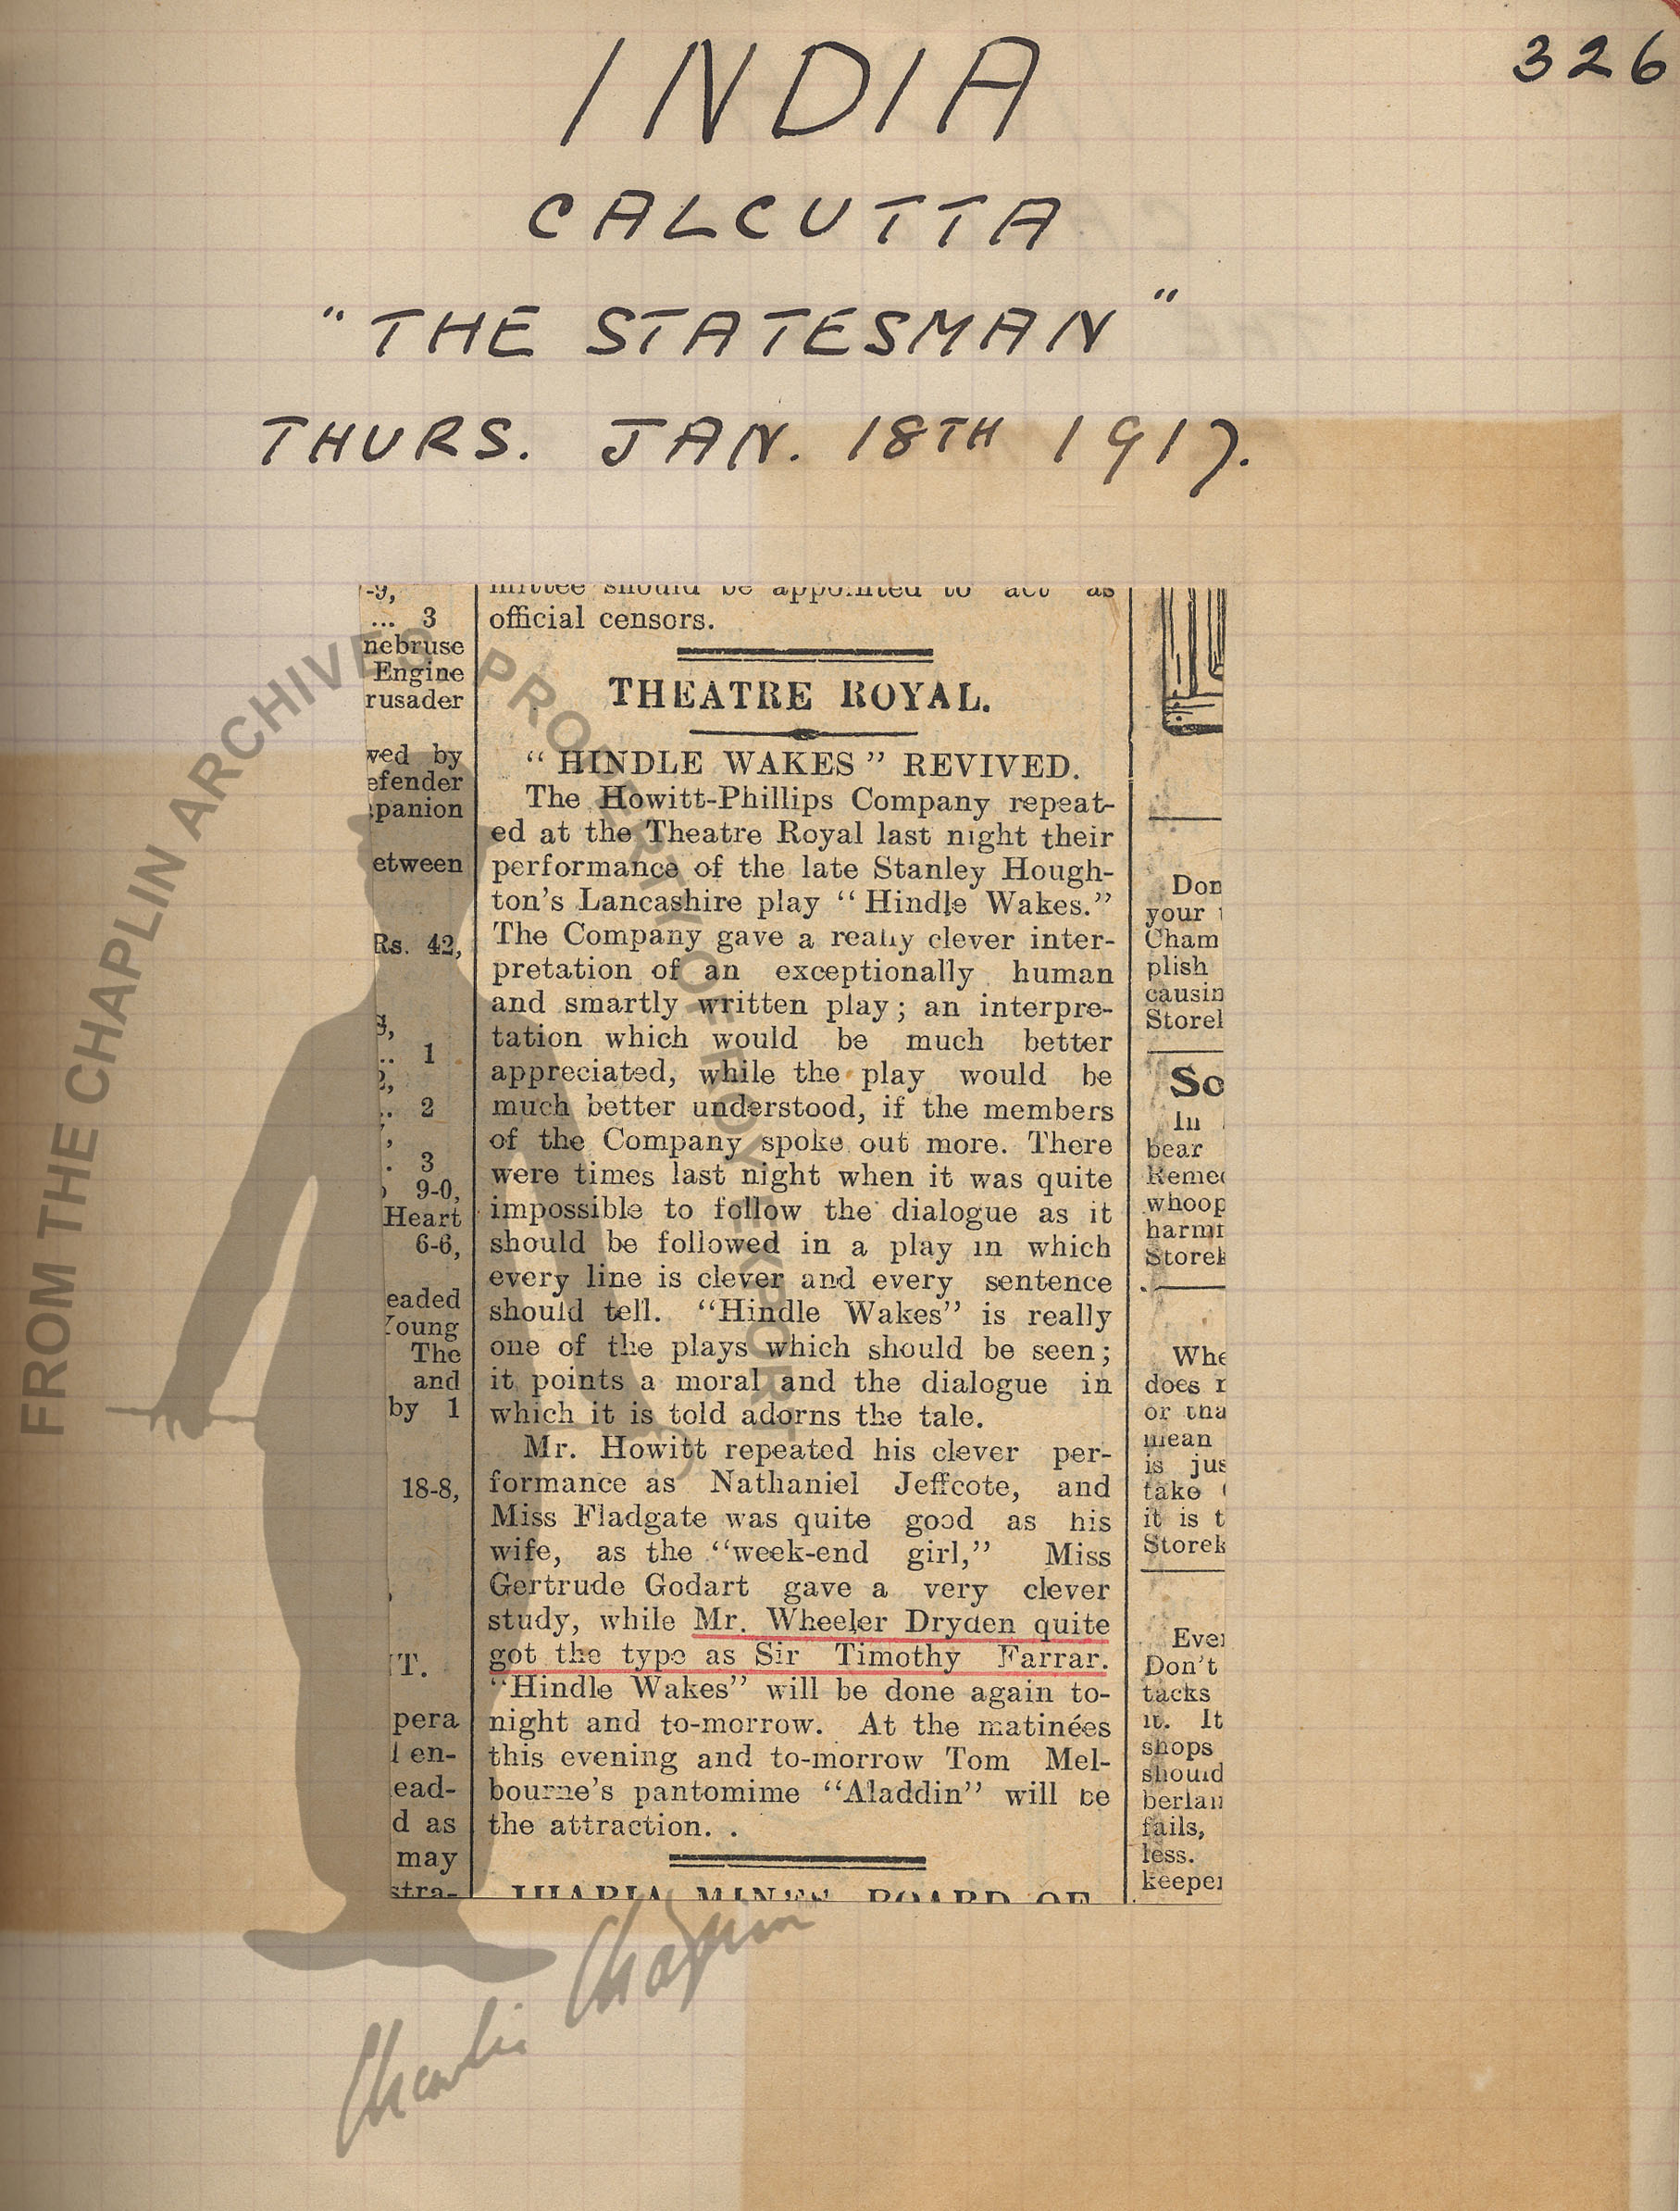 326
INDIA
CALCUTTA
"THE STATESMAN"
THURS. JAN. 18TH 1917.
mittee should be appointed to act as
official censors.
THEATRE ROYAL.
"HINDLE WAKES" REVIVED.
The Howitt-Phillips Company repeat-
ed at the Theatre Royal last night their
performance of the late Stanley Hough-
ton's Lancashire play "Hindle Wakes."
The Company gave a really clever inter-
pretation of an exceptionally human
and smartly written play; an interpre-
tation which would be much better
appreciated, while the play would be
much better understood, if the members
of the Company spoke out more. There
were times last night when it was quite
impossible to follow the dialogue as it
should be followed in a play in which
every line is clever and every sentence
should tell. "Hindle Wakes" is really
one of the plays which should be seen;
it points a moral and the dialogue in
which it is told adorns the tale.
Mr. Howitt repeated his clever per-
formance as Nathaniel Jeffcote, and
Miss Fladgate was quite good as his
wife, as the "week-end girl," Miss
Gertrude Godart gave a very clever
study, while Mr. Wheeler Dryden quite
got the type as Sir Timothy Farrar.
"Hindle Wakes" will be done again to-
night and to-morrow. At the matinées
this evening and to-morrow Tom Mel-
bourne's pantomime "Aladdin" will be
the attraction. .
JHARIA MINES BOARD OF
-9,
... 3
nebruse
Engine
rusader
ved by
efender
panion
etween
Rs. 42,
.. 1
.. 2
. 3
9-0,
Heart
6-6,
eaded
Young
The
and
by 1
18-8,
T.
pera
en-
ead-
d as
may
stra-
Don
your
Cham
plish
causin
Storek
So
In
bear
Remed
whoop
harm
Storek
Whe
does
or tha
mean
is jus
take
it is t
Storek
Ever
Don't
tacks
it. It
shops
should
berlain
fails,
less.
keeper
FROM THE CHAPLIN ARCHIVES PROPERTY OF ROY EXPORT
Charlie Chaplin